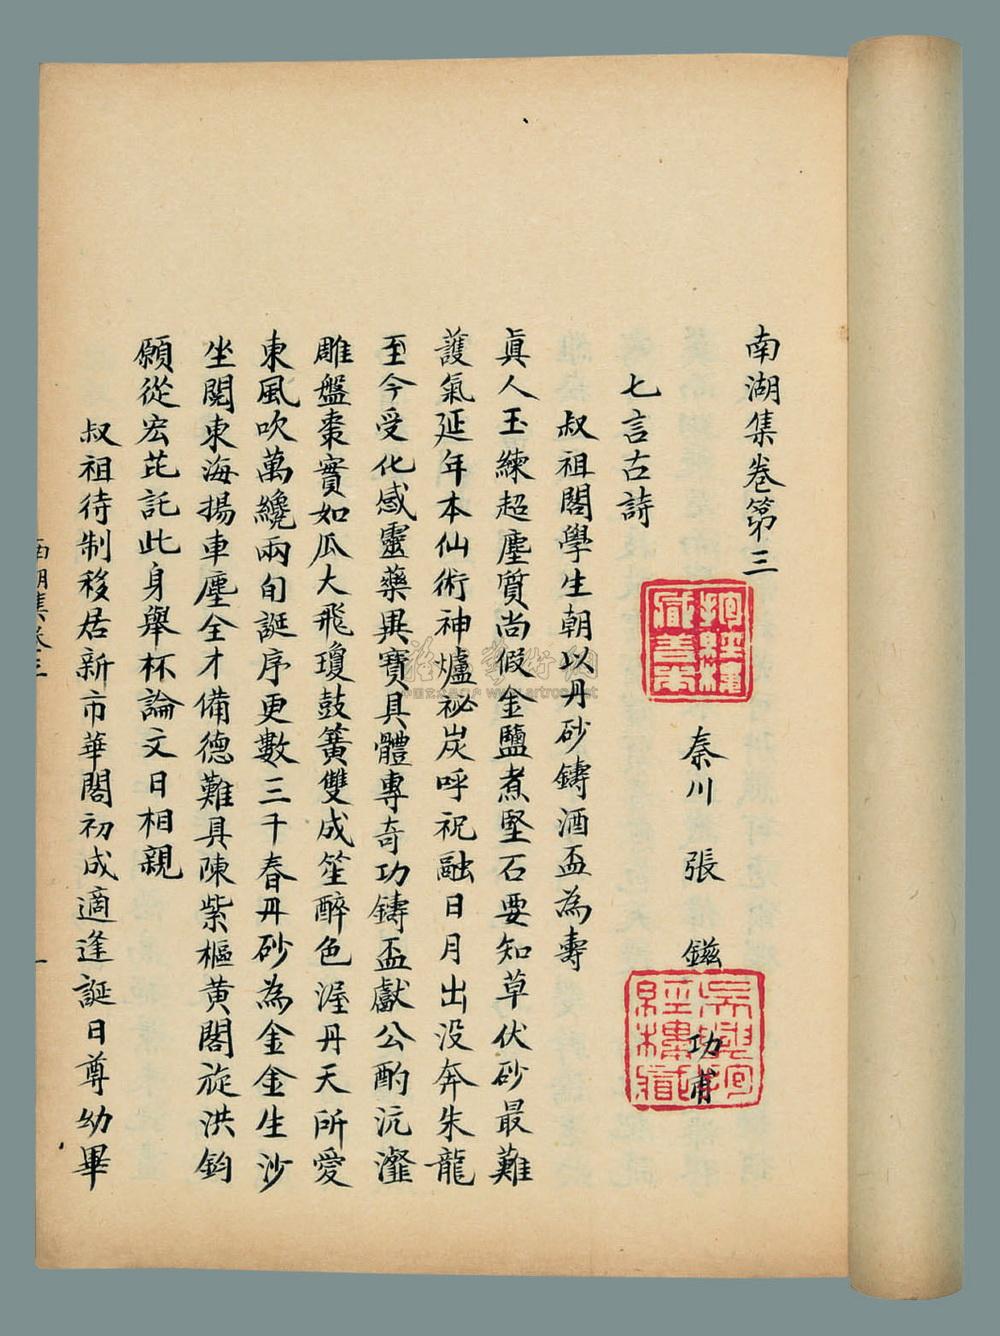 南湖集卷第三
秦川張鎡功甫
七言古詩
叔祖閣學生朝以丹砂鑄酒盃為壽
真人玉練超塵質尚假金鹽煮堅石要知草伏砂最難
護氣延年本仙術神爐祕炭呼祝融日月出没奔朱龍
至今受化感靈藥異寶具體專奇功鑄盃獻公酌沆瀣
雕盤棗實如瓜大飛瓊鼓簧雙成笙醉色渥丹天所愛
東風吹萬纔兩旬誕序更數三千春丹砂為金金生沙
坐閱東海揚車塵全才備德難具陳紫樞黃閣旋洪鈞
願從宏芘託此身舉杯論文日相親
叔祖待制移居新市華閣初成適逢誕日尊幼畢
南湖集卷三
一
抱經樓藏善本